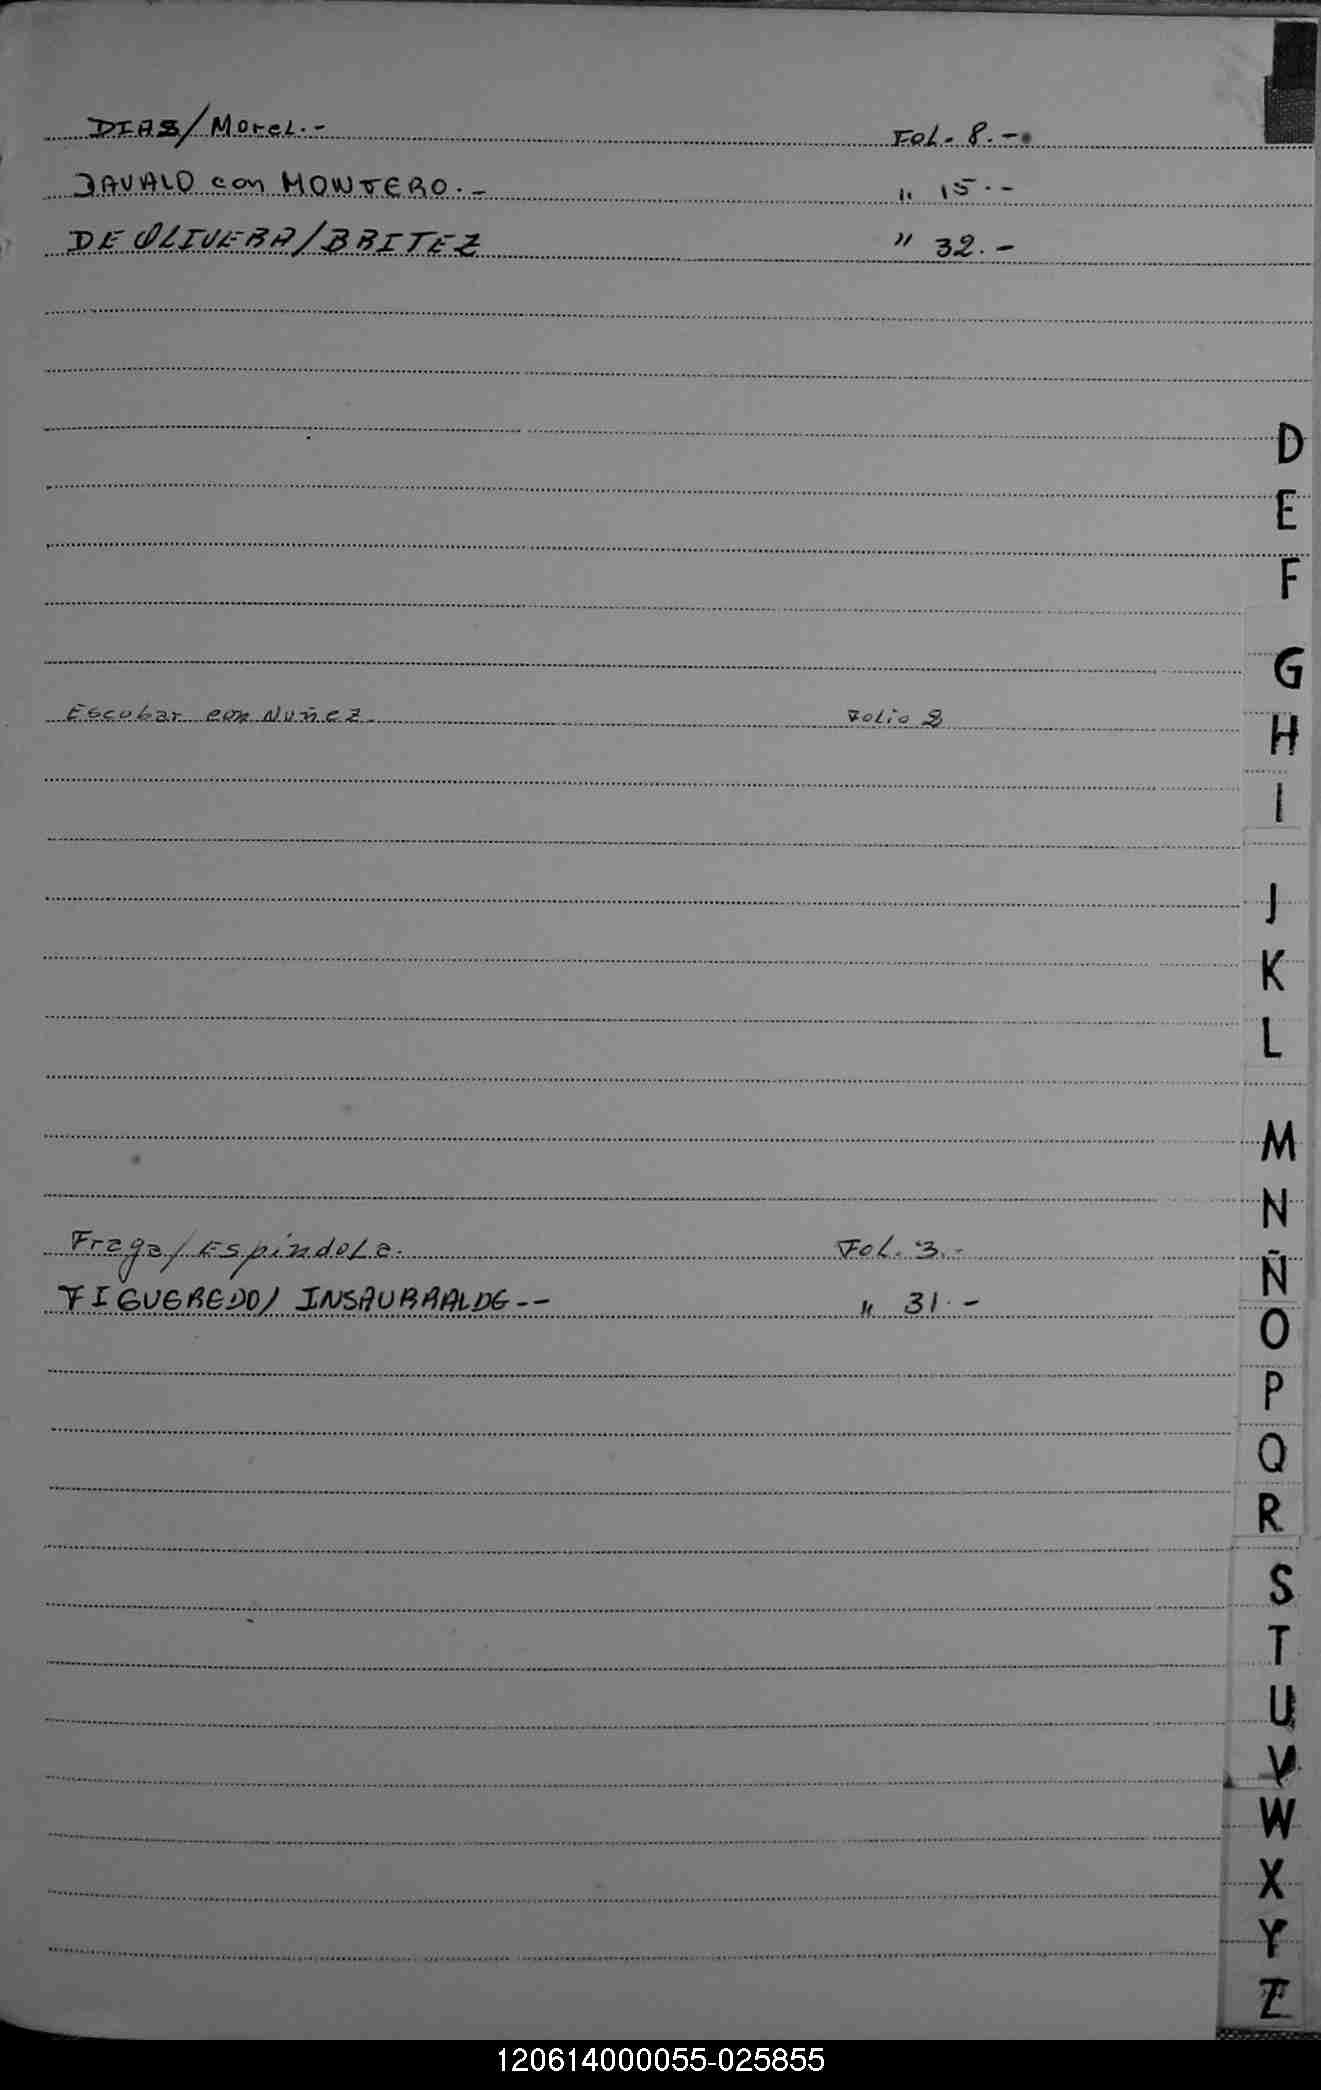 DIAS/Morel.- FOL. 8.-.
DAVALO con MONTERO.- " 15.-
DE OLIVERA/BRITEZ " 32.-
D
E
F
G
Escobar con Nuñez. Folio 2
H
I
J
K
L
M
N
Fraga/Espindola. Fol. 3.-
Ñ
FIGUEREDO/ INSAURRALDE-- " 31.-
O
P
Q
R
S
T
U
V
W
X
Y
Z
120614000055-025855